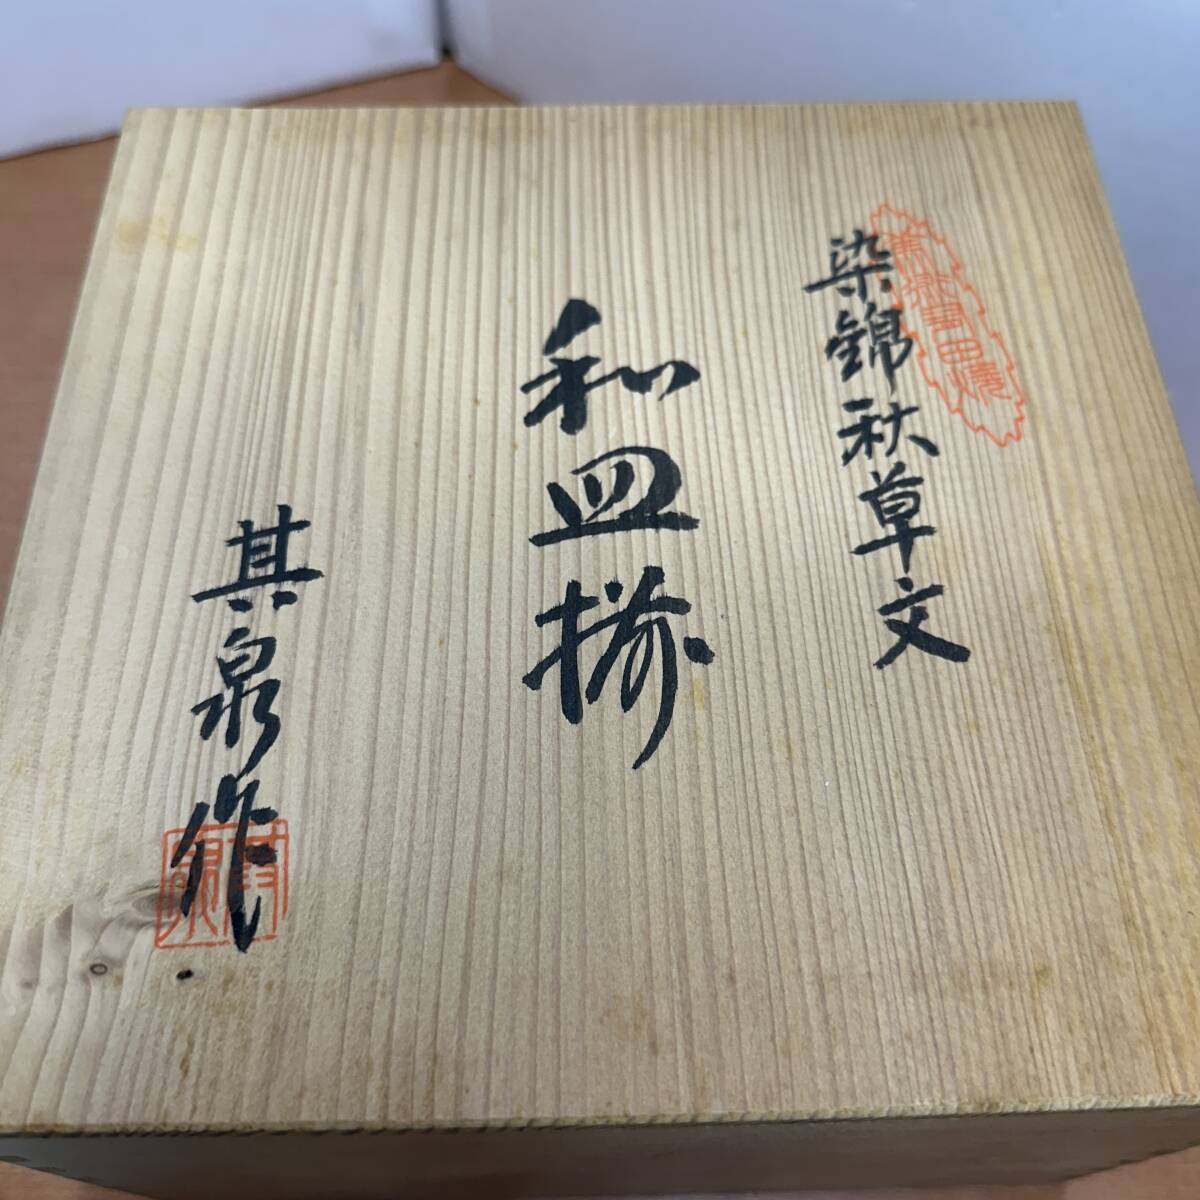 染錦秋草文
和皿揃
其泉作